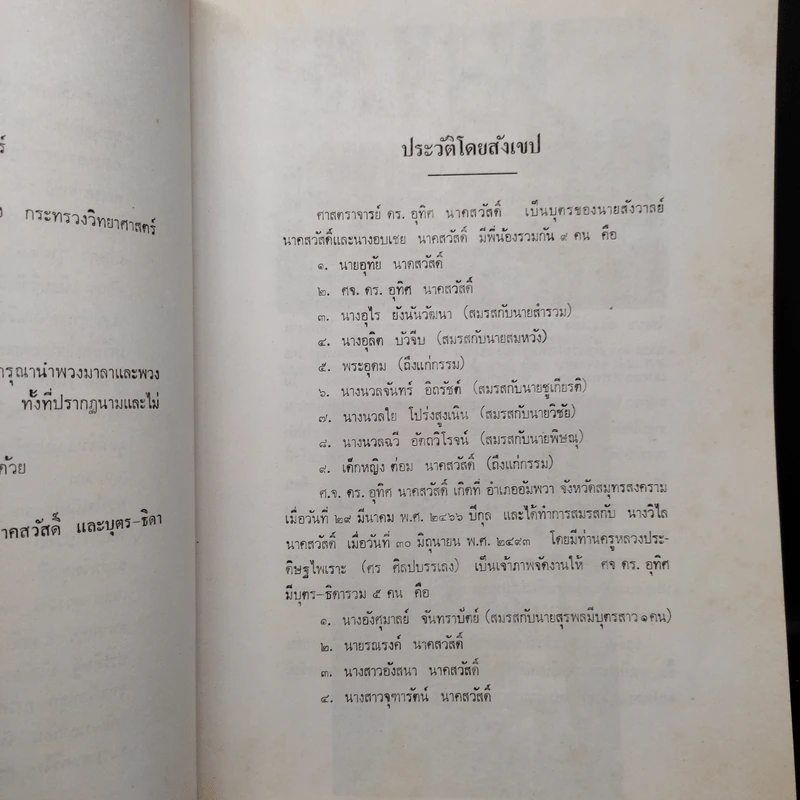 ร์
กระทรวงวิทยาศาสตร์
กรุณานำพวงมาลาและพวง
ทั้งที่ปรากฏนามและไม่
ด้วย
นาคสวัสดิ์ และบุตร-ธิดา
ประวัติโดยสังเขป
ศาสตราจารย์ ดร. อุทิศ นาคสวัสดิ์ เป็นบุตรของนายสังวาลย์
นาคสวัสดิ์และนางอบเชย นาคสวัสดิ์ มีพี่น้องรวมกัน ๙ คน คือ
๑. นายอุทัย นาคสวัสดิ์
๒. ศจ. ดร. อุทิศ นาคสวัสดิ์
๓. นางอุไร ยังนันวัฒนา (สมรสกับนายสำรวม)
๔. นางอุลิต บัวจีบ (สมรสกับนายสมหวัง)
๕. พระอุดม (ถึงแก่กรรม)
๖. นางนวลจันทร์ อิถรัชต์ (สมรสกับนายชูเกียรติ)
๗. นางนวลใย โปร่งสูงเนิน (สมรสกับนายวิชัย)
๘. นางนวลฉวี อัตถวิโรจน์ (สมรสกับนายพิษณุ)
๙. เด็กหญิง ต่อม นาคสวัสดิ์ (ถึงแก่กรรม)
ศ.จ. ดร. อุทิศ นาคสวัสดิ์ เกิดที่ อำเภออัมพวา จังหวัดสมุทรสงคราม
เมื่อวันที่ ๒๙ มีนาคม พ.ศ. ๒๔๖๖ ปีกุล และได้ทำการสมรสกับ นางวิไล
นาคสวัสดิ์ เมื่อวันที่ ๓๐ มิถุนายน พ.ศ. ๒๔๙๓ โดยมีท่านครูหลวงประ-
ดิษฐไพเราะ (ศร ศิลปบรรเลง) เป็นเจ้าภาพจัดงานให้ ศจ ดร. อุทิศ
มีบุตร-ธิดารวม ๕ คน คือ
๑. นางอังศุมาลย์ จันทราปัตย์ (สมรสกับนายสุรพลมีบุตรสาว ๑ คน)
๒. นายรณรงค์ นาคสวัสดิ์
๓. นางสาวอังสนา นาคสวัสดิ์
๔. นางสาวจุฑารัตน์ นาคสวัสดิ์